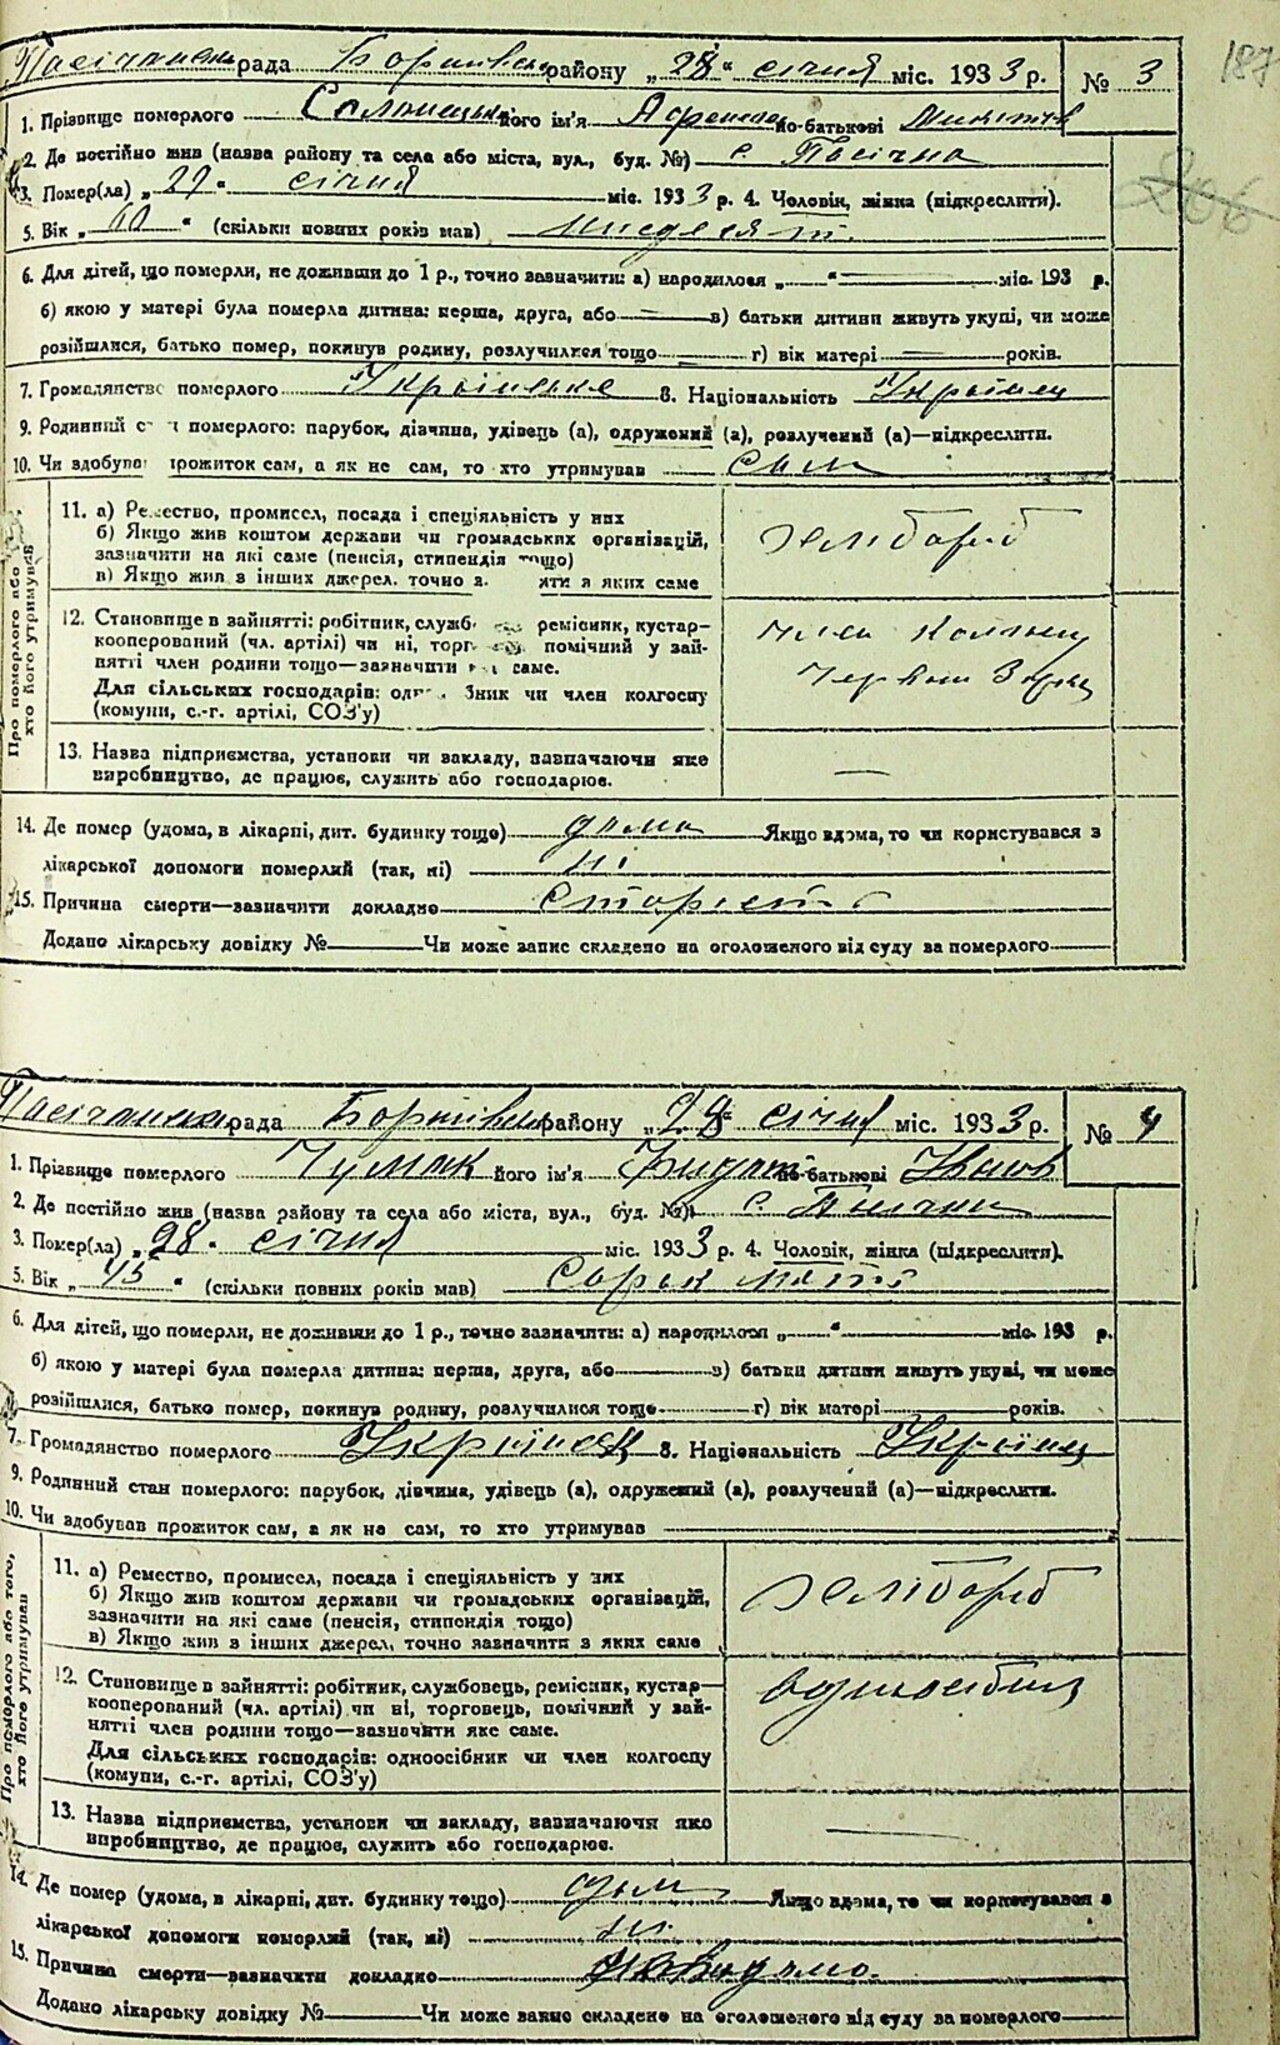 рада району „28“ січня міс. 1933 р. № 3
187
1. Прізвище померлого його ім'я по-батькові
2. Де постійно жив (назва району та села або міста, вул., буд. №) с. Пасічна
206
3. Помер(ла) „27“ січня міс. 1933 р. 4. Чоловік, жінка (підкреслити).
5. Вік „60“ (скільки повних років мав)
6. Для дітей, що померли, не доживши до 1 р., точно зазначити: а) народилося „ “ міс. 193 р.
б) якою у матері була померла дитина: перша, друга, або в) батьки дитини живуть укупі, чи може
розійшлися, батько помер, покинув родину, розлучилися тощо г) вік матері років.
7. Громадянство померлого Українське 8. Національність Українец
9. Родинний с н померлого: парубок, дівчина, удівець (а), одружений (а), розлучений (а)—підкреслити.
10. Чи здобував прожиток сам, а як не сам, то хто утримував сам
Про померлого або
хто його утримував
11. а) Ремество, промисел, посада і спеціяльність у них
б) Якщо жив коштом держави чи громадських організацій,
зазначити на які саме (пенсія, стипендія тощо)
в) Якщо жив з інших джерел, точно з яких саме
хлібороб
12. Становище в зайнятті: робітник, службо ремісник, кустар—
кооперований (чл. артілі) чи ні, торг помічний у зай-
нятті член родини тощо—зазначити саме.
Для сільських господарів: од зник чи член колгоспу
(комуни, с.-г. артілі, СОЗ'у)
член
13. Назва підприємства, установи чи закладу, зазначаючи яке
виробництво, де працює, служить або господарює.
—
14. Де помер (удома, в лікарні, дит. будинку тощо) дома Якщо вдома, то чи користувався з
лікарської допомоги померлий (так, ні) ні
15. Причина смерти—зазначити докладно старість
Додано лікарську довідку № Чи може запис складено на оголошеного від суду за померлого
рада району „28“ січня міс. 1933 р. № 4
1. Прізвище померлого Чумак його ім'я по-батькові Іванов
2. Де постійно жив (назва району та села або міста, вул., буд. №) с. Пасічна
3. Помер(ла) „28“ січня міс. 1933 р. 4. Чоловік, жінка (підкреслити).
5. Вік „45“ (скільки повних років мав) Сорок
6. Для дітей, що померли, не доживши до 1 р., точно зазначити: а) народилося „ “ міс. 193 р.
б) якою у матері була померла дитина: перша, друга, або в) батьки дитини живуть укупі, чи може
розійшлися, батько помер, покинув родину, розлучилися тощо г) вік матері років.
7. Громадянство померлого 8. Національність Українец
9. Родинний стан померлого: парубок, дівчина, удівець (а), одружений (а), розлучений (а)—підкреслити.
10. Чи здобував прожиток сам, а як не сам, то хто утримував
Про померлого або того,
хто його утримував
11. а) Ремество, промисел, посада і спеціяльність у них
б) Якщо жив коштом держави чи громадських організацій,
зазначити на які саме (пенсія, стипендія тощо)
в) Якщо жив з інших джерел, точно зазначити з яких саме
хлібороб
12. Становище в зайнятті: робітник, службовець, ремісник, кустар—
кооперований (чл. артілі) чи ні, торговець, помічний у зай-
нятті член родини тощо—зазначити яке саме.
Для сільських господарів: одноосібник чи член колгоспу
(комуни, с.-г. артілі, СОЗ'у)
13. Назва підприємства, установи чи закладу, зазначаючи яке
виробництво, де працює, служить або господарює.
—
14. Де помер (удома, в лікарні, дит. будинку тощо) Якщо вдома, то чи користувався з
лікарської допомоги померлий (так, ні) ні
15. Причина смерти—зазначити докладно невидомо.
Додано лікарську довідку № Чи може запис складено на оголошеного від суду за померлого